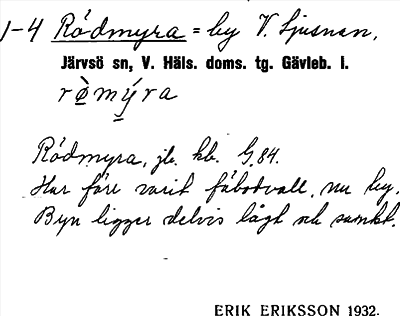 1-4 Rödmyra = by V. Ljusnan.
Järvsö sn, V. Häls. doms. tg. Gävleb. l.
rò̤mý̱ra
Rödmyra, jb. kb. G, 84.
Har före varit fäbodvall, nu by.
Byn ligger delvis lågt och sankt.
ERIK ERIKSSON 1932.